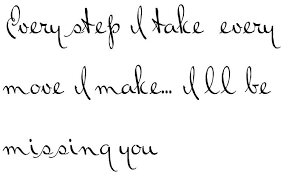 Every step I take every
move I make... I ll be
missing you